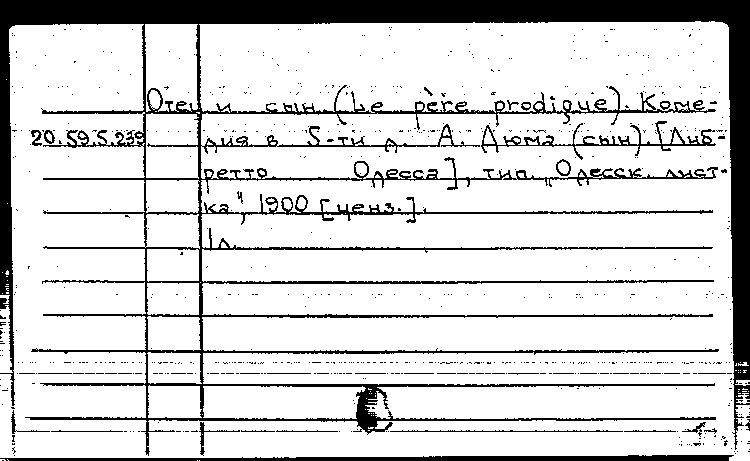 Отец и сын (Le père prodigue). Коме-
20.59.5.239 дия в 5-ти д. А. Дюма (сын). [Либ-
ретто. Одесса], тип. „Одесск. лист-
ка", 1900 [ценз.].
1 л.